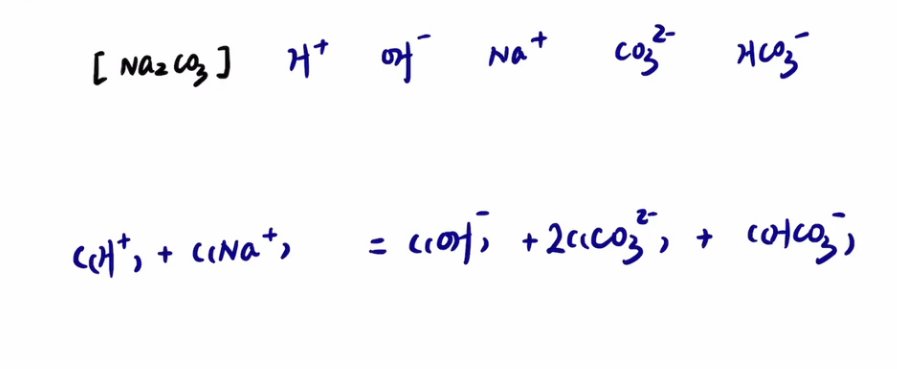 [Na₂CO₃] H⁺ OH⁻ Na⁺ CO₃²⁻ HCO₃⁻
C(H⁺) + C(Na⁺) = C(OH⁻) + 2C(CO₃²⁻) + C(HCO₃⁻)